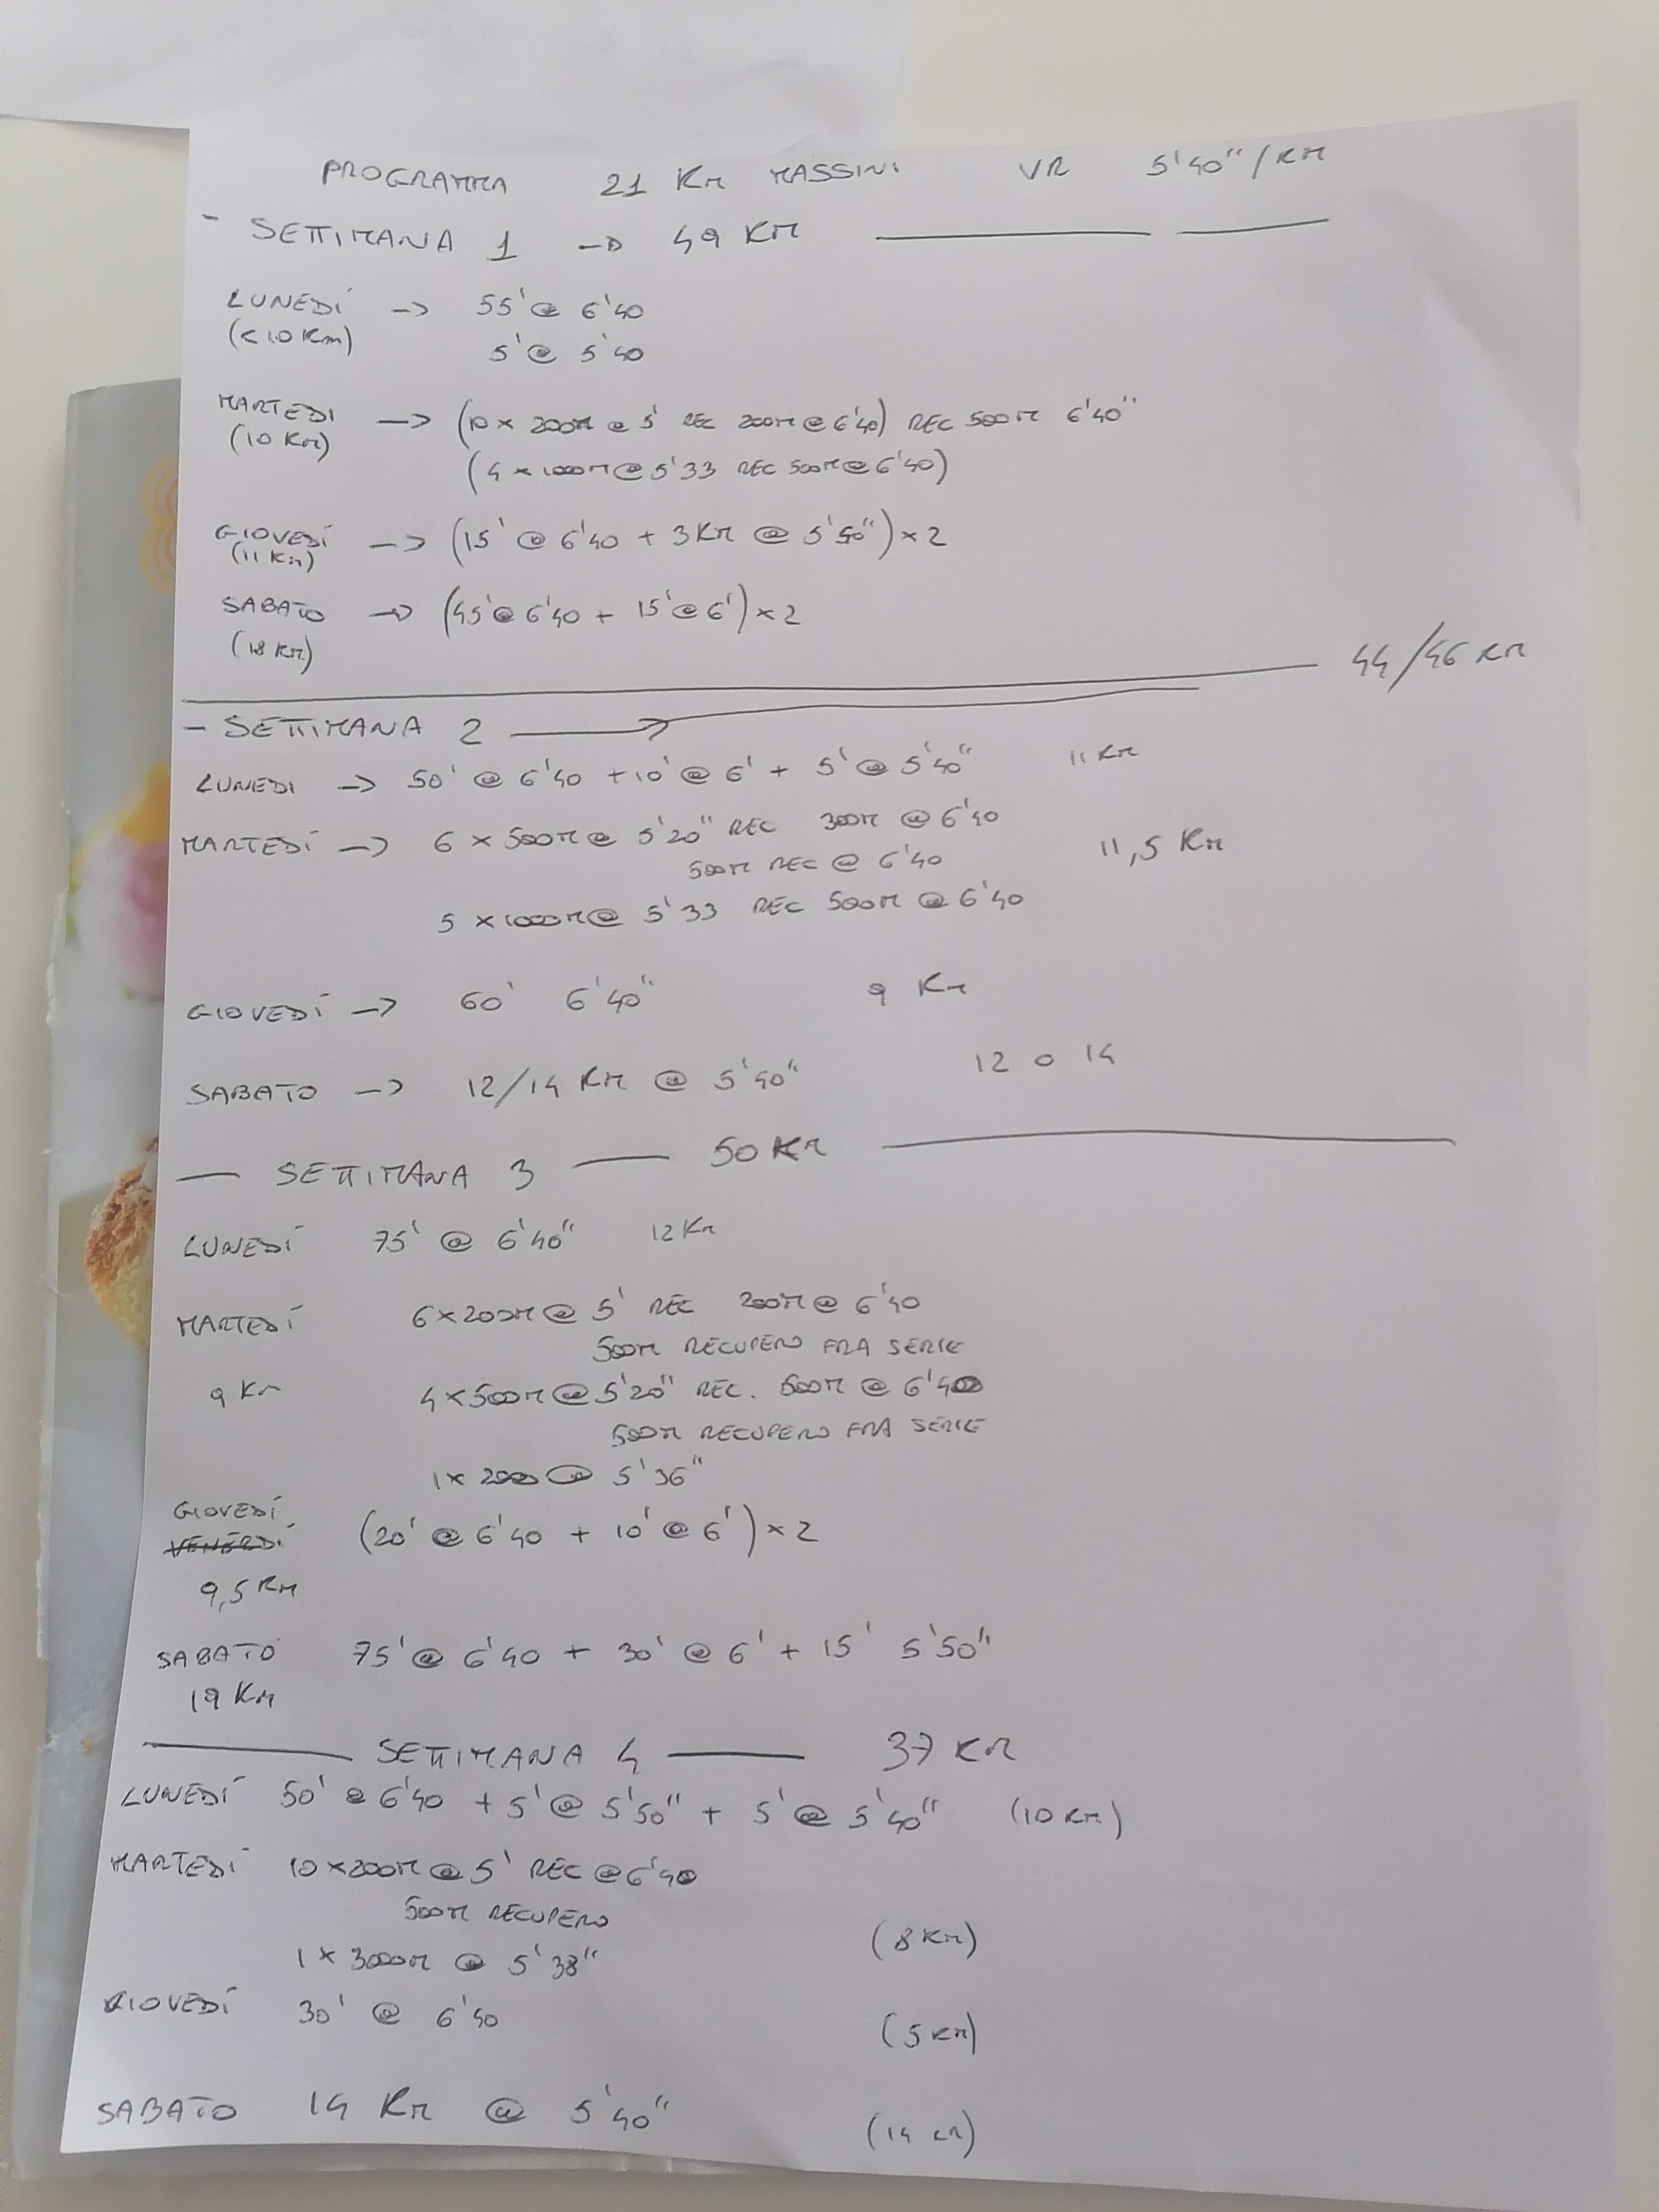 PROGRAMMA 21 KM MASSINI VR 5'40"/KM
- SETTIMANA 1 -> 49 KM
LUNEDÍ -> 55' @ 6'40
(<10 Km) 5' @ 5'40
MARTEDI -> (10 x 200M @ 5' REC 200M @ 6'40) REC 500M 6'40"
(10 Km) (4 x 1000M @ 5'33 REC 500M @ 6'40)
GIOVEDÍ -> (15' @ 6'40 + 3KM @ 5'50") x 2
(11 Km)
SABATO -> (45' @ 6'40 + 15' @ 6') x 2
(18 KM)
44/46 KM
- SETTIMANA 2 ->
LUNEDI -> 50' @ 6'40 + 10' @ 6' + 5' @ 5'40" 11 KM
MARTEDÍ -> 6 x 500M @ 5'20" REC 300M @ 6'40
500M REC @ 6'40 11,5 KM
5 x 1000M @ 5'33 REC 500M @ 6'40
GIOVEDÍ -> 60' 6'40" 9 KM
SABATO -> 12/14 KM @ 5'40" 12 o 14
— SETTIMANA 3 — 50 KM
LUNEDÍ 75' @ 6'40" 12 KM
MARTEDÍ 6x200M @ 5' REC 200M @ 6'40
500M RECUPERO FRA SERIE
9 KM 4x500M @ 5'20" REC. 500M @ 6'40
500M RECUPERO FRA SERIE
1x 2000 @ 5'36"
GIOVEDÍ
VENERDI (20' @ 6'40 + 10' @ 6') x 2
9,5 KM
SABATO 75' @ 6'40 + 30' @ 6' + 15' 5'50"
19 KM
— SETTIMANA 4 — 37 KM
LUNEDÍ 50' @ 6'40 + 5' @ 5'50" + 5' @ 5'40" (10 KM)
MARTEDÍ 10 x 200M @ 5' REC @ 6'40
500M RECUPERO
(8 KM)
1 x 3000M @ 5'38"
GIOVEDÍ 30' @ 6'40
(5 KM)
SABATO 14 KM @ 5'40"
(14 KM)